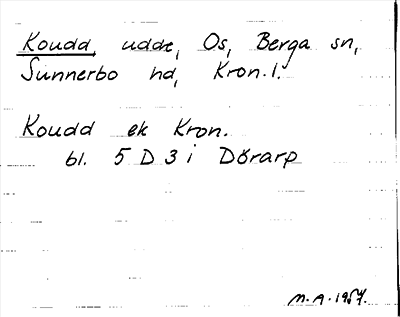 Koudd, udde, Os, Berga sn,
Sunnerbo hd, Kron.l.
Koudd ek Kron.
bl. 5 D 3 i Dörarp
M.A. 1954.